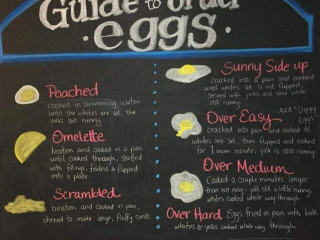 Guide to order
eggs.
Poached
cooked in simmering water
until the whites are set, the
yolks still runny.
Omelette
beaten and cooked in a pan
until cooked through, stuffed
with fillings, folded & flipped
onto a plate.
Scrambled
beaten and cooked in pan,
stirred to make large, fluffy curds
Sunny Side up
cracked into a pan and cooked
until whites set. Is not flipped,
served with yolks and some white
still runny.
AKA "Dippy
Eggs"
Over Easy
cracked into pan and cooked til
whites are set, then flipped and cooked
for 1 more minute, yolk is still runny.
Over Medium
Cooked a couple minutes longer
than over easy - yolk still a little runny,
whites cooked whole way through.
Over Hard Eggs fried in pan with both
whites & yolks cooked whole way through.